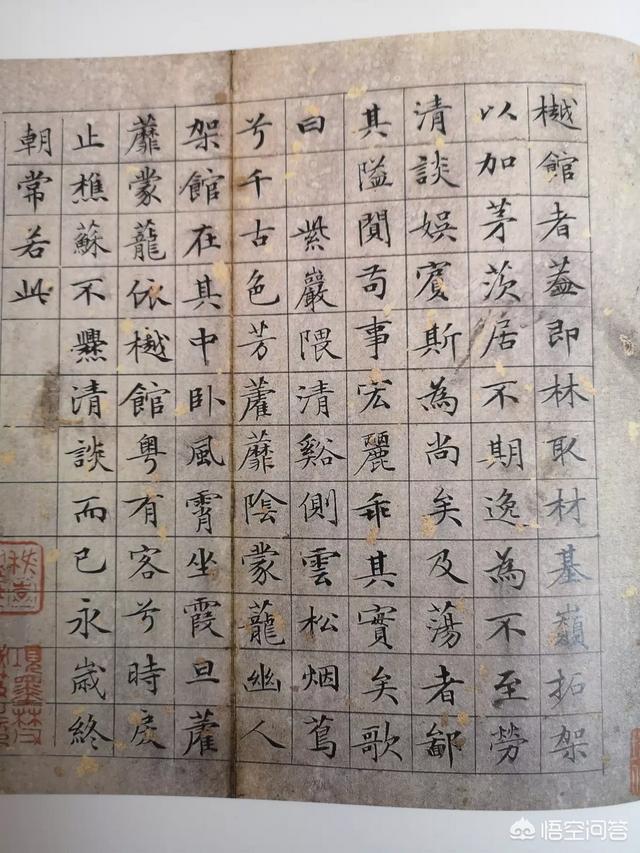 樾館者葢即林取材基巔拓架
以加茅茨居不期逸為不至勞
清談娛賓斯為尚矣及蕩者鄙
其隘閴苟事宏麗乖其實矣歌
曰 紫巖隈清谿側雲松烟蔦
兮千古色芳藿蘼陰蒙蘢幽人
架館在其中卧風霄坐霞旦藿
蘼蒙蘢依樾館粵有客兮時戾
止樵蘇不爨清談而已永歲終
朝常若此
悟空问答